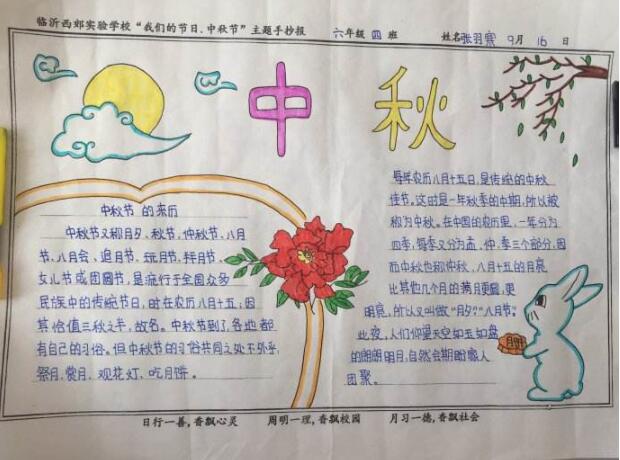 临沂西郊实验学校“我们的节日、中秋节”主题手抄报 六年级 四 班 姓名 张羽宸 9月 16 日
中秋
中秋节 的来历
中秋节又称月夕、秋节、仲秋节、八月
节、八月会、追月节、玩月节、拜月节、
女儿节或团圆节，是流行于全国众多
民族中的传统节日，时在农历八月十五；因
其恰值三秋之半，故名。中秋节到了，各地都
有自己的习俗。但中秋节的习俗共同之处不外乎：
祭月、赏月、观花灯、吃月饼。
每年农历八月十五日，是传统的中秋
佳节。这时是一年秋季的中期，所以被
称为中秋。在中国的农历里，一年分为
四季，每季又分为孟、仲、季三个部分，因
而中秋也称仲秋。八月十五的月亮
比其他几个月的满月更圆，更
明亮，所以又叫做“月夕”？八月节。
此夜，人们仰望天空如玉如盘
的朗朗明月，自然会期盼家人
团聚。
月饼
日行一善，香飘心灵 周明一理，香飘校园 月习一德，香飘社会